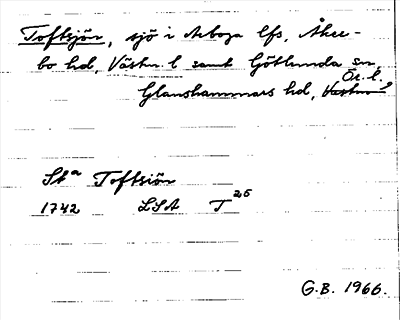 Toftsjön, sjö i Arboga lfs, Åker-
bo hd, Västm. l samt Götlunda sn,
Glanshammars hd, Ör. l.
Sta Toftsiön
1742 LSA T 25
G.B. 1966.